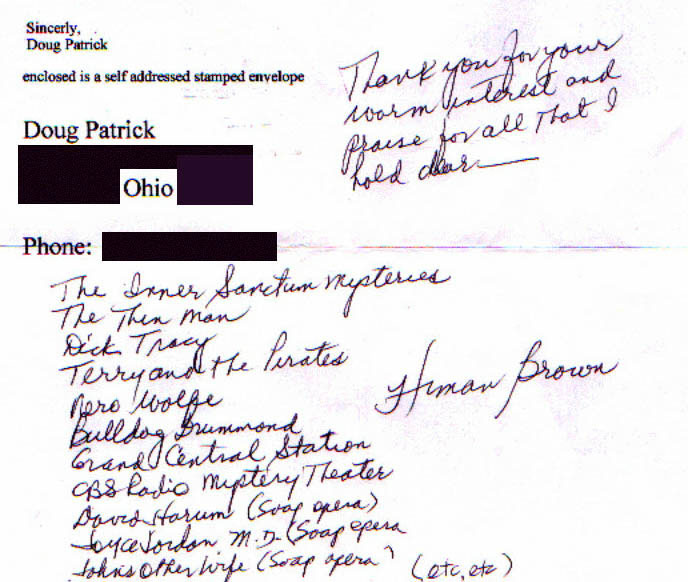 Sincerely,
Doug Patrick
enclosed is a self addressed stamped envelope
Thank you for your
warm interest and
praise for all that I
hold dear
Doug Patrick
Ohio
Phone:
The Inner Sanctum Mysteries
The Thin Man
Dick Tracy
Terry and the Pirates
Nero Wolfe
Bulldog Drummond
Grand Central Station
CBS Radio Mystery Theater
David Harum (Soap opera)
Joyce Jordan M.D. (Soap opera
John's Other Wife (Soap opera)
(etc, etc)
Himan Brown